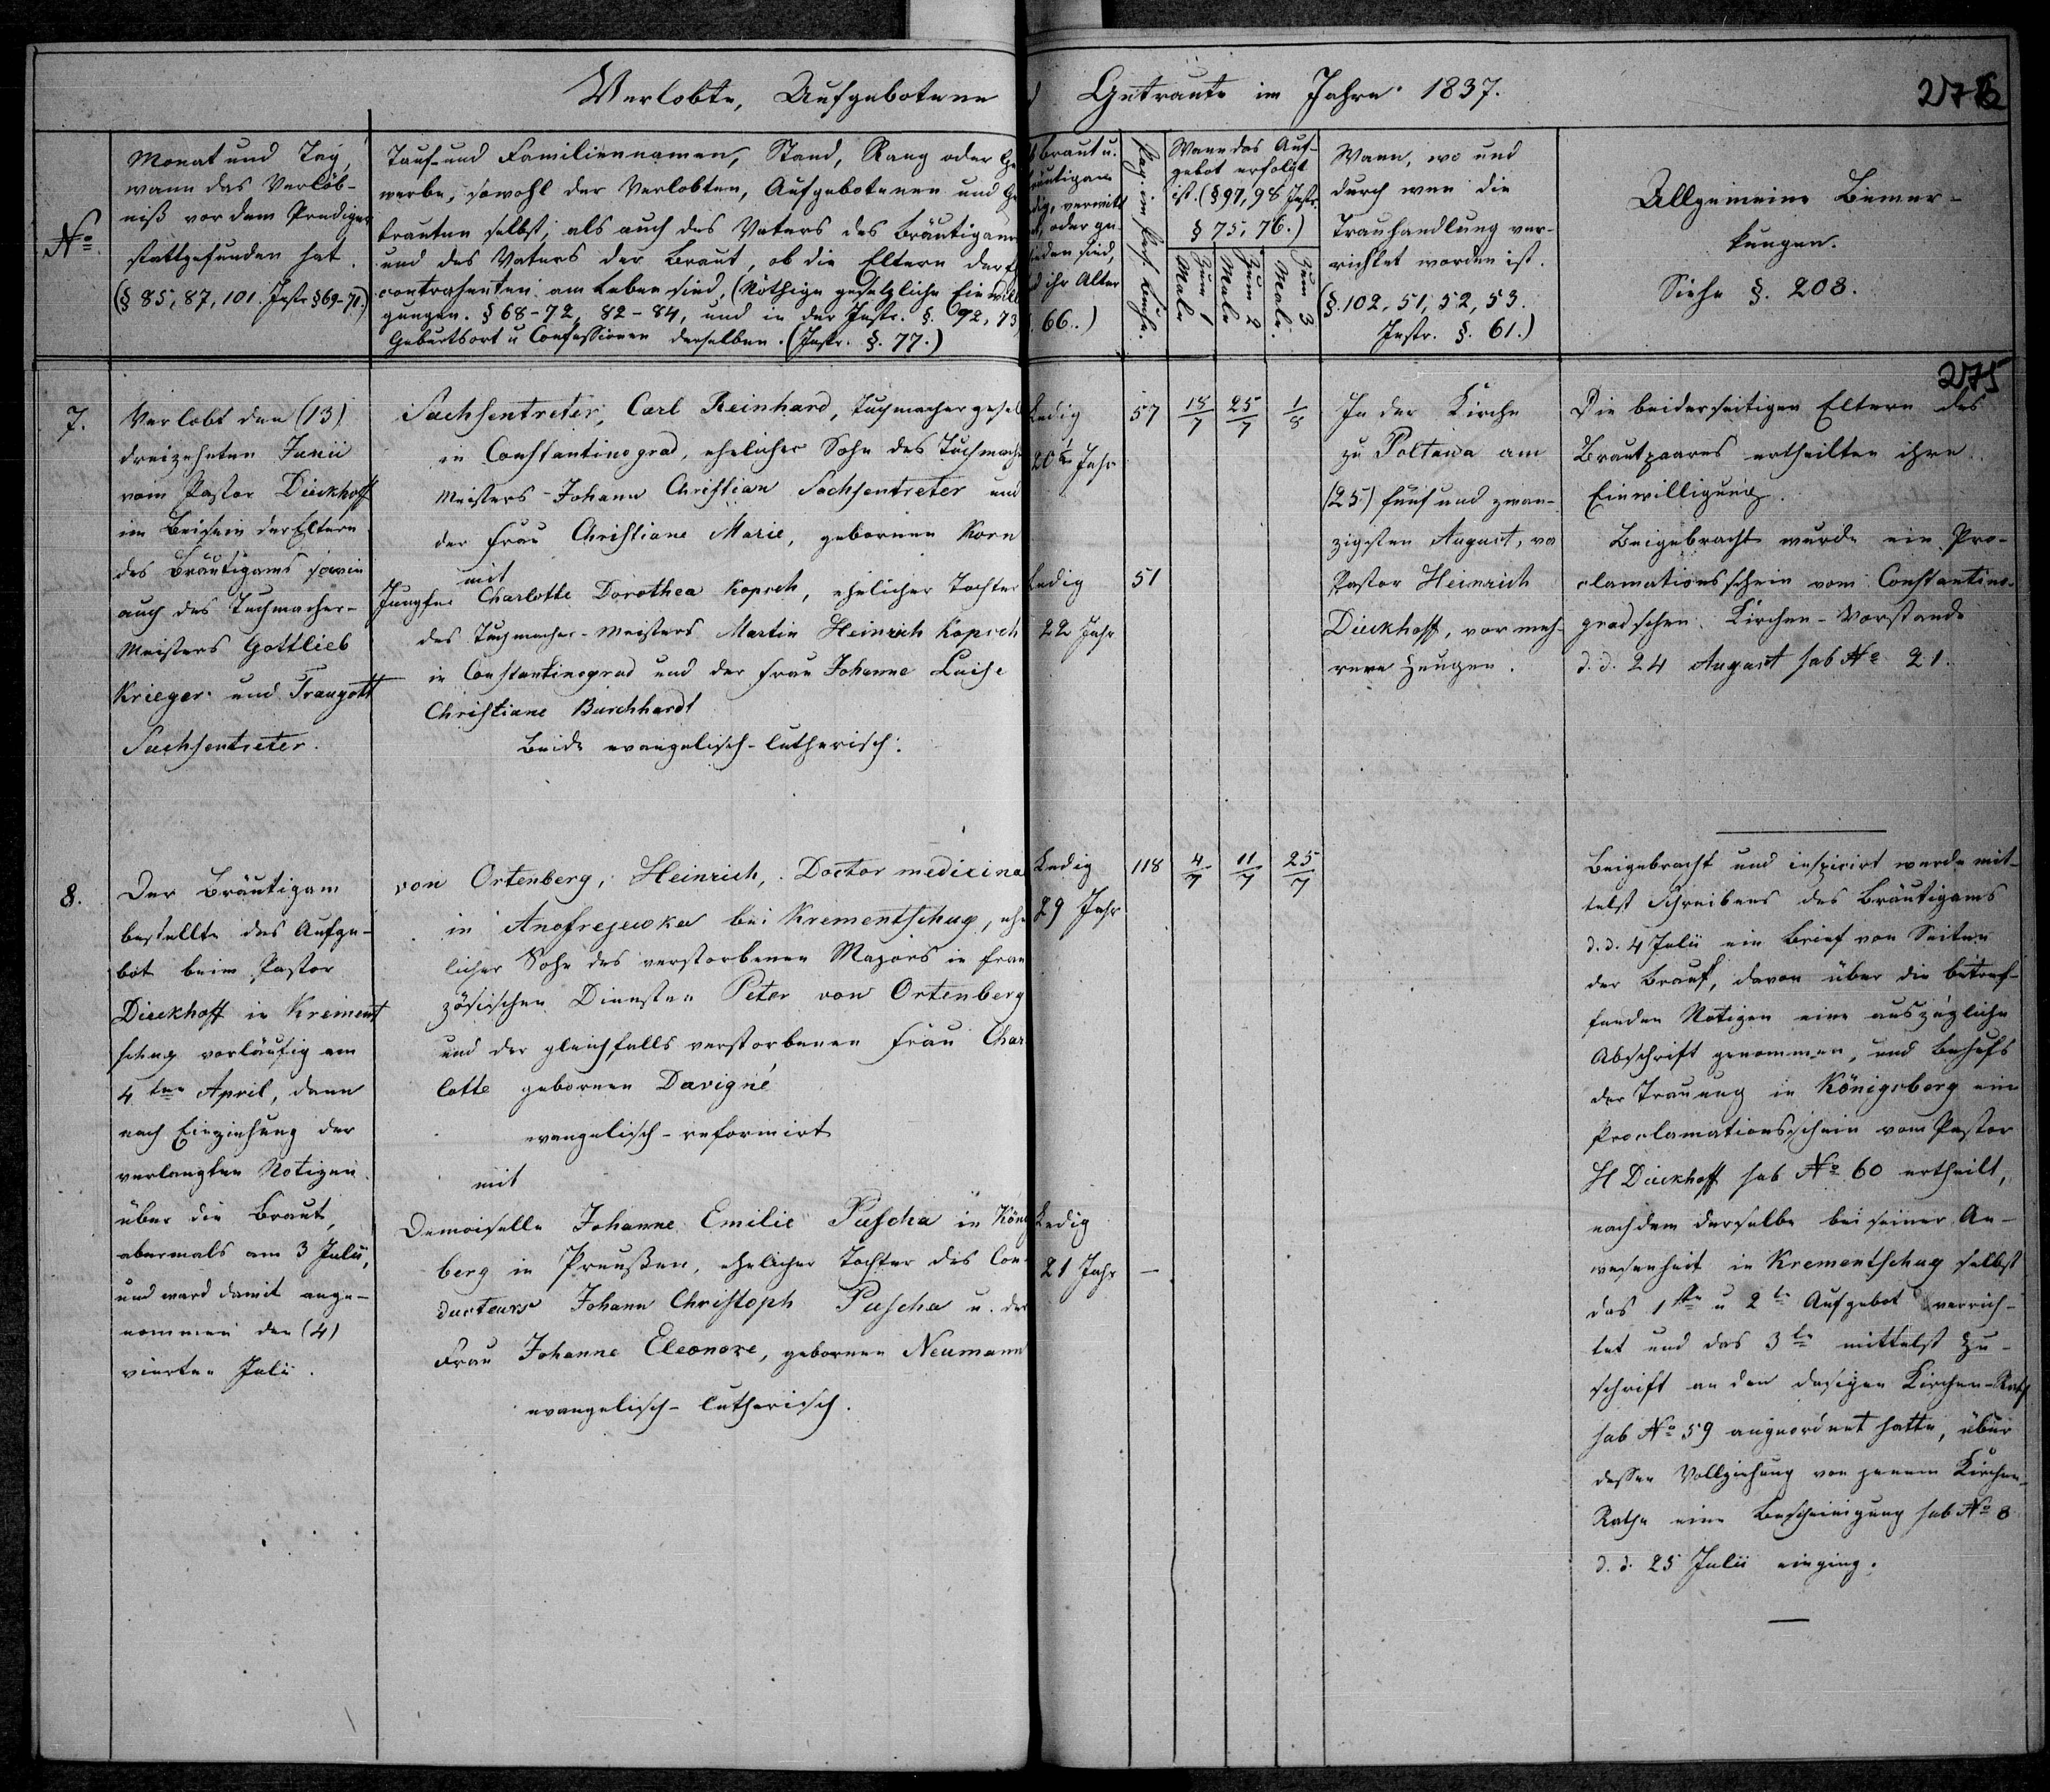 Verlobte, Aufgebotene
d Getraute im Jahre 1837.
276
No.
Monat und Tag,
wann das Verlöb-
niß vor dem Prediger
stattgefunden hat.
(§ 85, 87, 101. Instr. § 69-71.)
Tauf- und Familiennamen, Stand, Rang oder Ge
werbe, sowohl der Verlobten, Aufgebotenen und Ge
trauten selbst, als auch des Vaters des Bräutigams
und des Vaters der Braut, ob die Eltern der
contrahenten am Leben sind, (Nöthige gesetzliche Einwill
gungen. § 68-72, 82-84, und in der Instr. §. 92, 73)
Geburtsort u Confessionen derselben. (Instr. §. 77.)
braut u.
äutigam
dig, verwitt
oder ge-
ieden sind,
d ihr Alter
. 66..)
Pag. im Pers. Buche.
Wann das Auf-
gebot erfolgt
ist. (§ 97, 98 Instr.
§ 75, 76.)
Zum 1 Male
Zum 2 Male
Zum 3 Male.
Wann, wo und
durch wen die
Trauhandlung ver-
richtet worden ist.
(§. 102, 51, 52, 53.
Instr. §. 61.)
Allgemeine Bemer-
kungen.
Siehe §. 208.
275
7.
Verlobt den (13)
dreizehnten Junii
vom Pastor Dieckhoff
im Beisein der Eltern
des Bräutigams sowie
auch des Tuchmacher-
Meisters Gottlieb
Krieger und Traugott
Sachsentreter.
Sachsentreter, Carl Reinhard, Tuchmachergesel
in Constantinograd, ehelicher Sohn des Tuchmach
Meisters Johann Christian Sachsentreter und
der Frau Christiane Marie, gebornen Korn
mit
Jungfer Charlotte Dorothea Kopsch, ehelicher Tochter
des Tuchmacher-Meisters Martin Heinrich Kopsch
in Constantinograd und der Frau Johanne Luise
Christiane Burchhardt
Beide evangelisch-lutherisch.
Ledig
20½ Jahr
Ledig
22 Jahr
57
51
18/7
25/7
1/8
In der Kirche
zu Poltawa am
(25.) fünf und zwan-
zigsten August, vo
Pastor Heinrich
Dieckhoff, vor meh-
reren Zeugen.
Die beiderseitigen Eltern des
Brautpaares ertheilten ihre
Einwilligung.
Beigebracht wurde ein Pro-
clamationsschein vom Constantino-
gradschen Kirchen-Vorstande
d. d. 24 August sub No 21.
8.
Der Bräutigam
bestellte das Aufge-
bot beim Pastor
Dieckhoff in Krement
schug vorläufig am
4ten April, dann
nach Einziehung der
verlangten Notizen
über die Braut,
abermals am 3 Julii,
und ward damit ange-
nommen den (4)
vierten Julii.
von Ortenberg, Heinrich, Doctor medicina
in Anofrejewka bei Krementschug, ehe
licher Sohn des verstorbenen Majors in fran
zösischen Diensten Peter von Ortenberg
und der gleichfalls verstorbenen Frau Char
lotte gebornen Davigné
evangelisch-reformirt
mit
Demoiselle Johanne Emilie Puscha in König
berg in Preußen, ehelicher Tochter des Con-
ducteurs Johann Christoph Puscha u. der
Frau Johanne Eleonore, gebornen Neumann
evangelisch-lutherisch.
Ledig
29 Jahr
Ledig
21 Jahr
118
—
4/7
11/7
25/7
Beigebracht und inspicirt wurde mit-
telst Schreibens des Bräutigams
d. d. 4 Julii ein Brief von Seiten
der Braut, davon über die betref-
fenden Notizen eine auszügliche
Abschrift genommen, und behufs
der Trauung in Königsberg ein
Proclamationsschein vom Pastor
H Dieckhoff sub No 60 ertheilt,
nachdem derselbe bei seiner An-
wesenheit in Krementschug selbst
das 1ste u 2te Aufgebot verrich-
tet und das 3te mittelst Zu-
schrift an den dasigen Kirchen-Rath
sub No 59 angeordnet hatte, über
dessen Vollziehung von jenem Kirchen-
Rathe eine Bescheinigung sub No 8
d. d. 25 Julii einging.